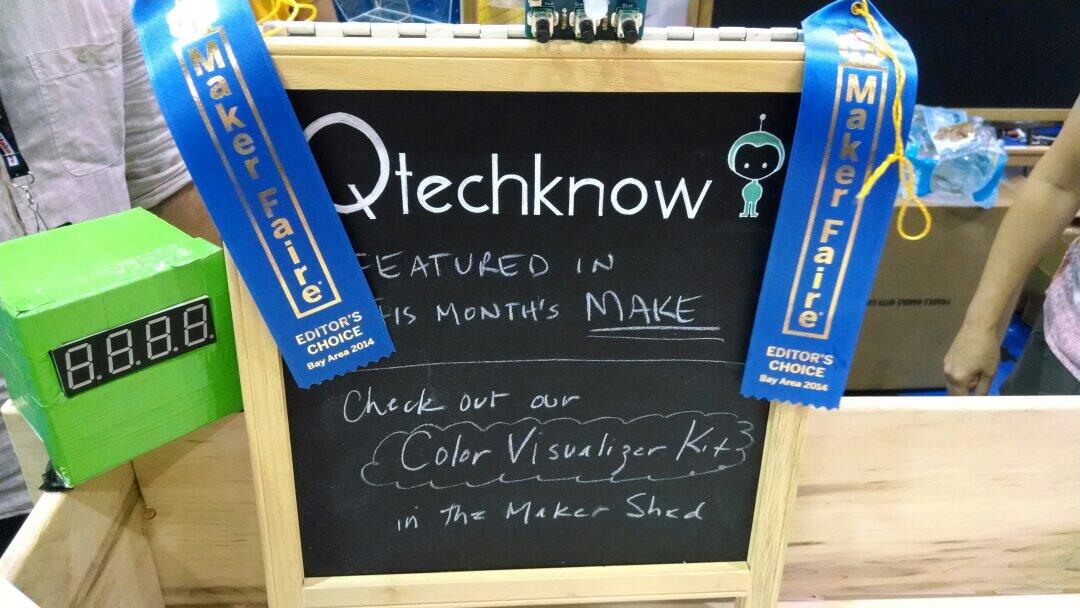 Qtechknow
FEATURED IN
MONTH'S MAKE
Check out our
Color Visualizer Kit
in the Maker Shed
Maker Faire®
EDITOR'S
CHOICE
Bay Area 2014
Maker Faire®
EDITOR'S
CHOICE
Bay Area 2014
8.8.8.8.
Green
Blue